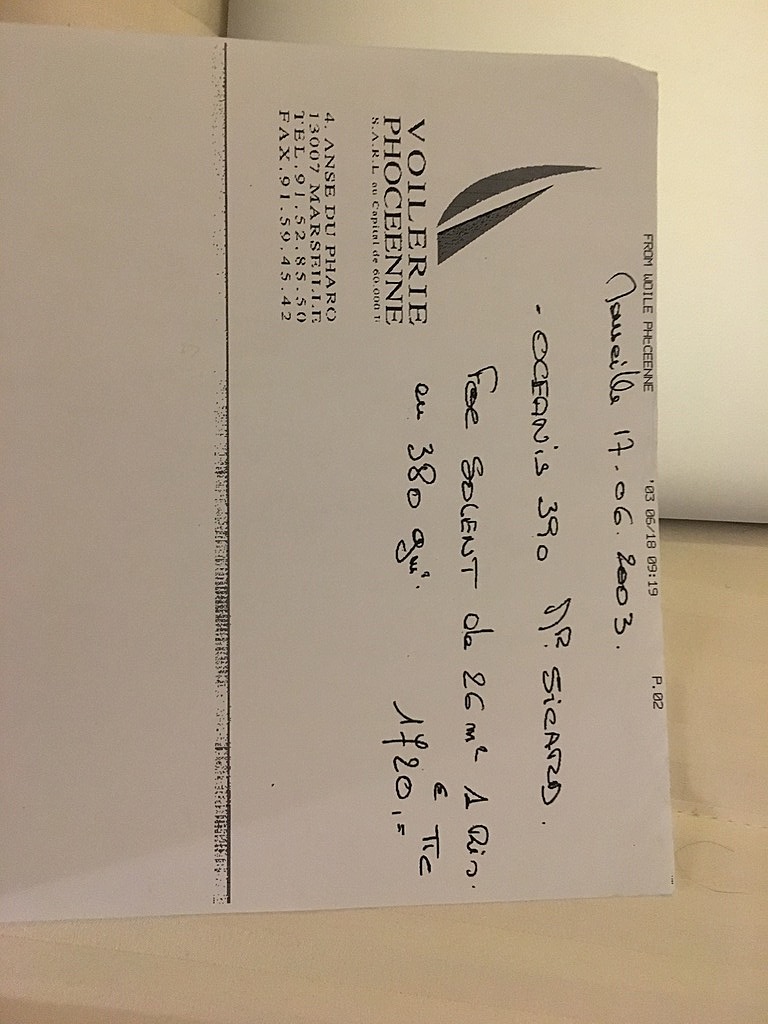 FROM VOILE PHOCEENNE '03 06/18 09:19 P.02
Marseille 17.06.2003.
- OCEANIS 390 Mr. SICARD.
Foc SOLENT de 26 m² 1 Ris.
en 380 gr/m².
€ TTC
1720,=
VOILERIE
PHOCEENNE
S.A.R.L. au Capital de 60.000 F
4. ANSE DU PHARO
13007 MARSEILLE
TEL.91.52.85.50
FAX.91.59.45.42